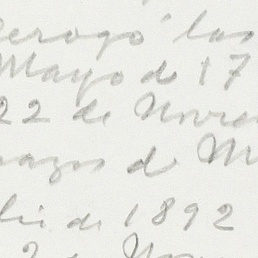 derogó las
Mayo de 17
22 de Nov
azos de M
lio de 1892